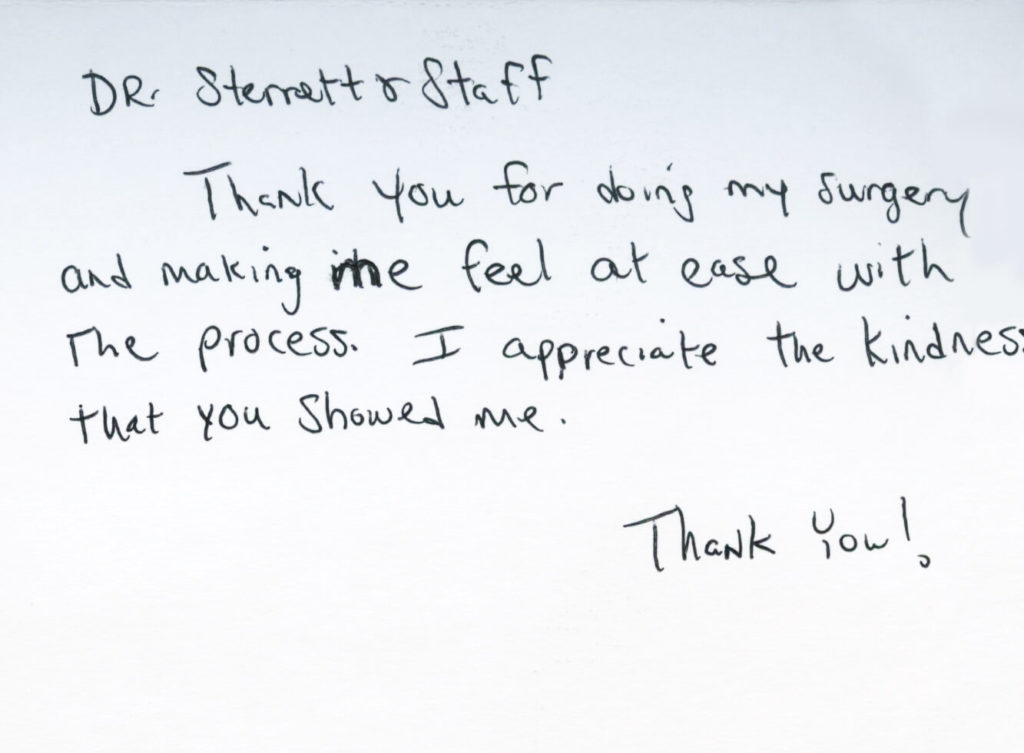 DR. Sterrett & Staff
Thank you for doing my surgery
and making me feel at ease with
The process. I appreciate the kindness
that you showed me.
Thank You!